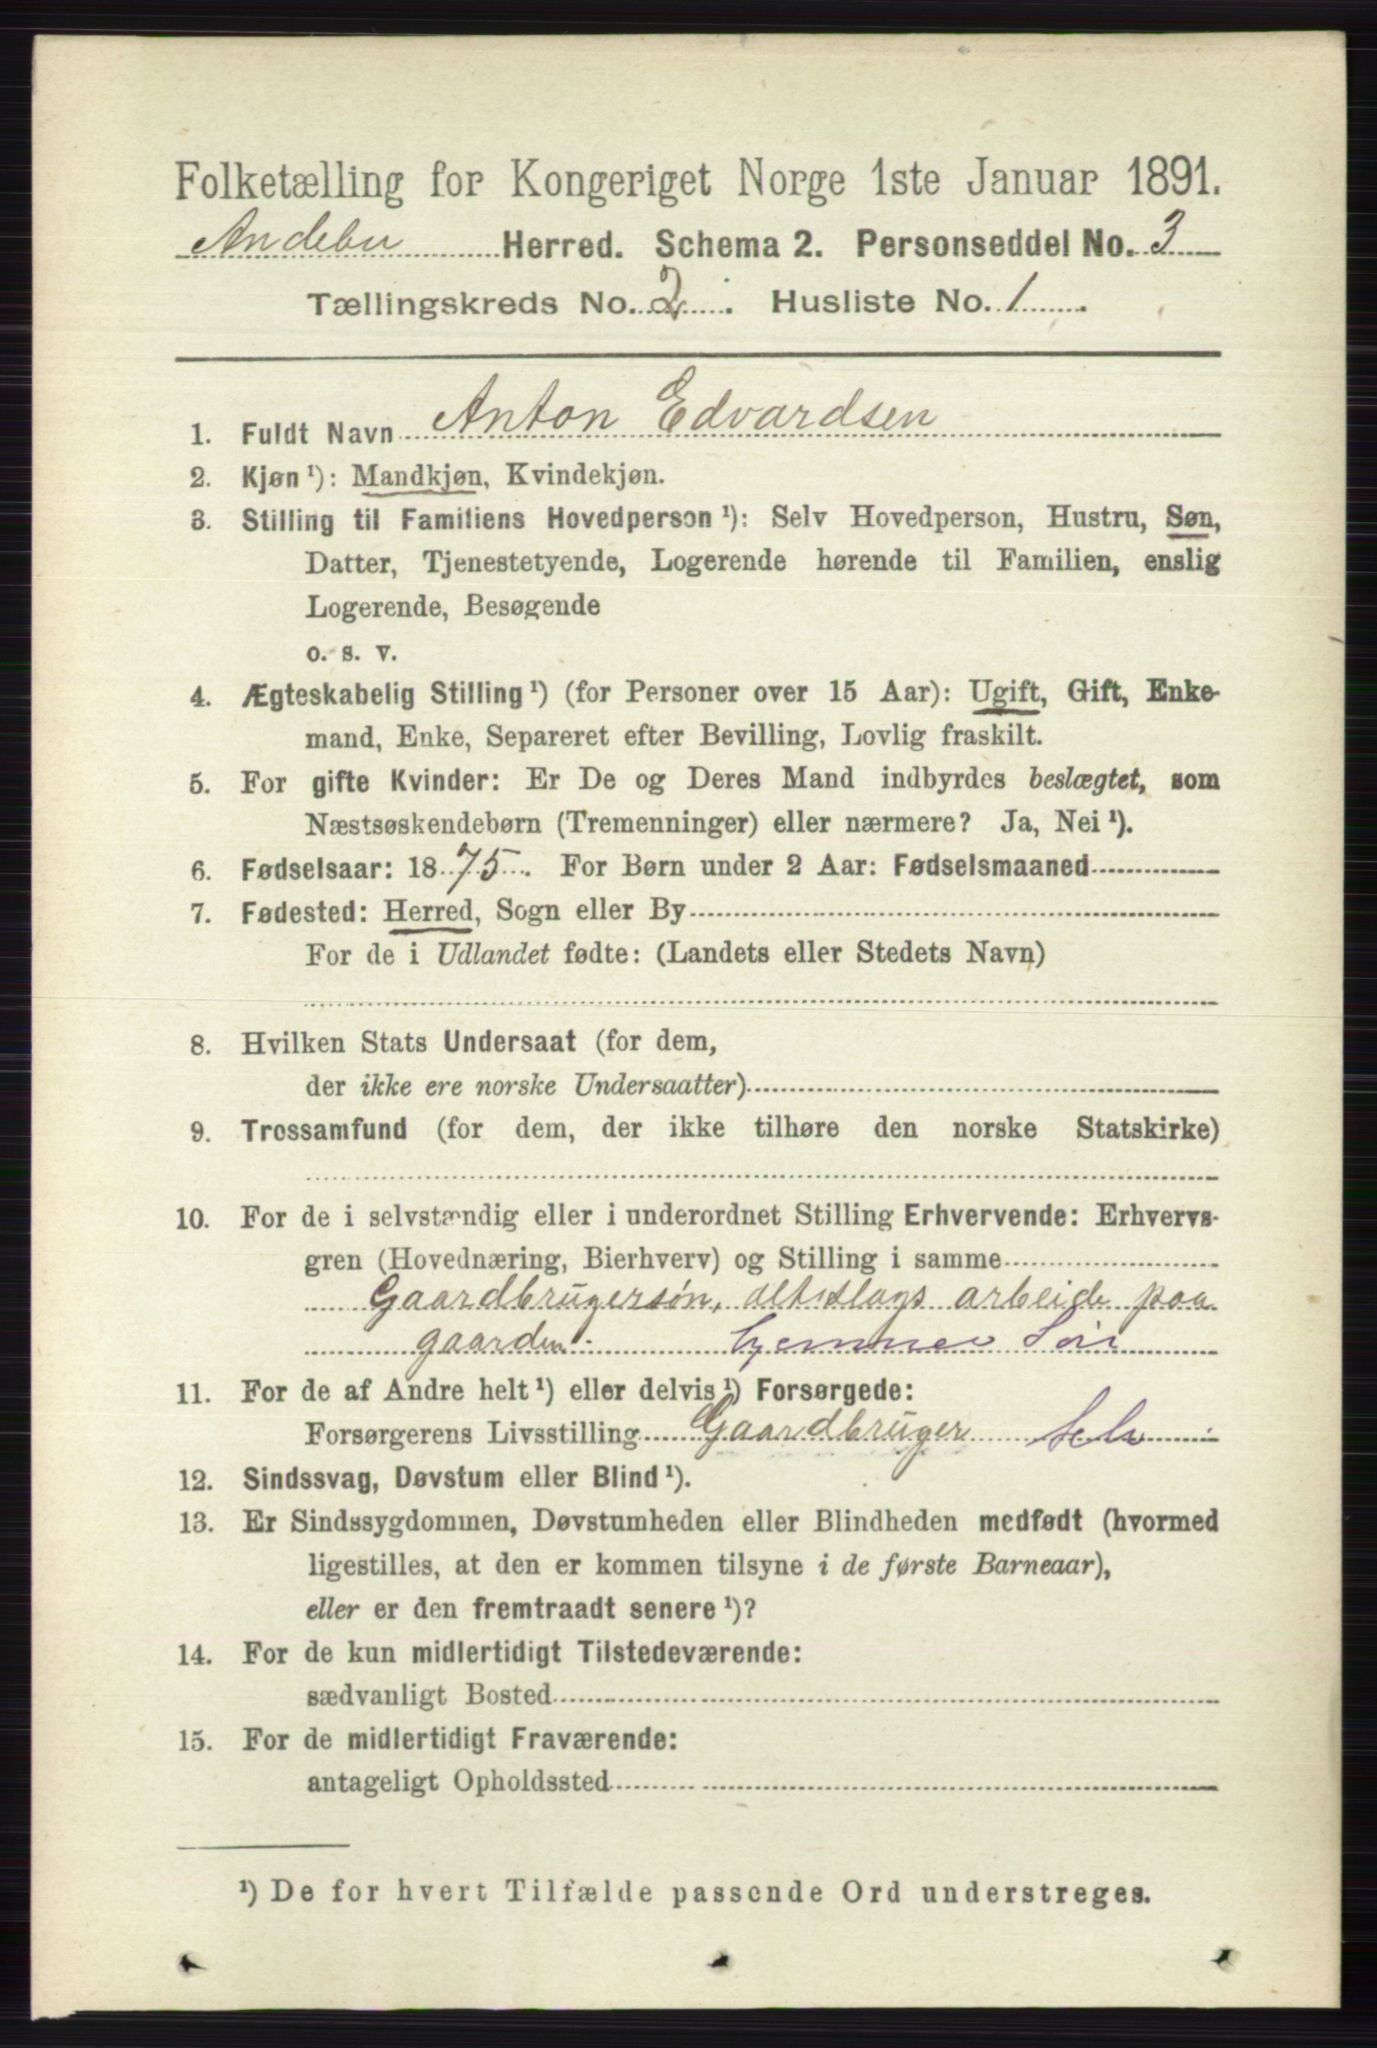 Folketælling for Kongeriget Norge 1ste Januar 1891.
Andebu Herred. Schema 2. Personseddel No. 3
Tællingskreds No. 2. Husliste No. 1.
1. Fuldt Navn Anton Edvardsen
2. Kjøn ¹): Mandkjøn, Kvindekjøn.
3. Stilling til Familiens Hovedperson ¹): Selv Hovedperson, Hustru, Søn,
Datter, Tjenestetyende, Logerende hørende til Familien, enslig
Logerende, Besøgende
o. s. v.
4. Ægteskabelig Stilling ¹) (for Personer over 15 Aar): Ugift, Gift, Enke-
mand, Enke, Separeret efter Bevilling, Lovlig fraskilt.
5. For gifte Kvinder: Er De og Deres Mand indbyrdes beslægtet, som
Næstsøskendebørn (Tremenninger) eller nærmere? Ja, Nei ¹).
6. Fødselsaar: 1875. For Børn under 2 Aar: Fødselsmaaned
7. Fødested: Herred, Sogn eller By
For de i Udlandet fødte: (Landets eller Stedets Navn)
8. Hvilken Stats Undersaat (for dem,
der ikke ere norske Undersaatter)
9. Trossamfund (for dem, der ikke tilhøre den norske Statskirke)
10. For de i selvstændig eller i underordnet Stilling Erhvervende: Erhvervs-
gren (Hovednæring, Bierhverv) og Stilling i samme
Gaardbrugersøn, altslags arbeide paa
gaarden.
11. For de af Andre helt ¹) eller delvis ¹) Forsørgede:
Forsørgerens Livsstilling Gaardbruger Selv
12. Sindssvag, Døvstum eller Blind ¹).
13. Er Sindssygdommen, Døvstumheden eller Blindheden medfødt (hvormed
ligestilles, at den er kommen tilsyne i de første Barneaar),
eller er den fremtraadt senere ¹)?
14. For de kun midlertidigt Tilstedeværende:
sædvanligt Bosted
15. For de midlertidigt Fraværende:
antageligt Opholdssted
¹) De for hvert Tilfælde passende Ord understreges.